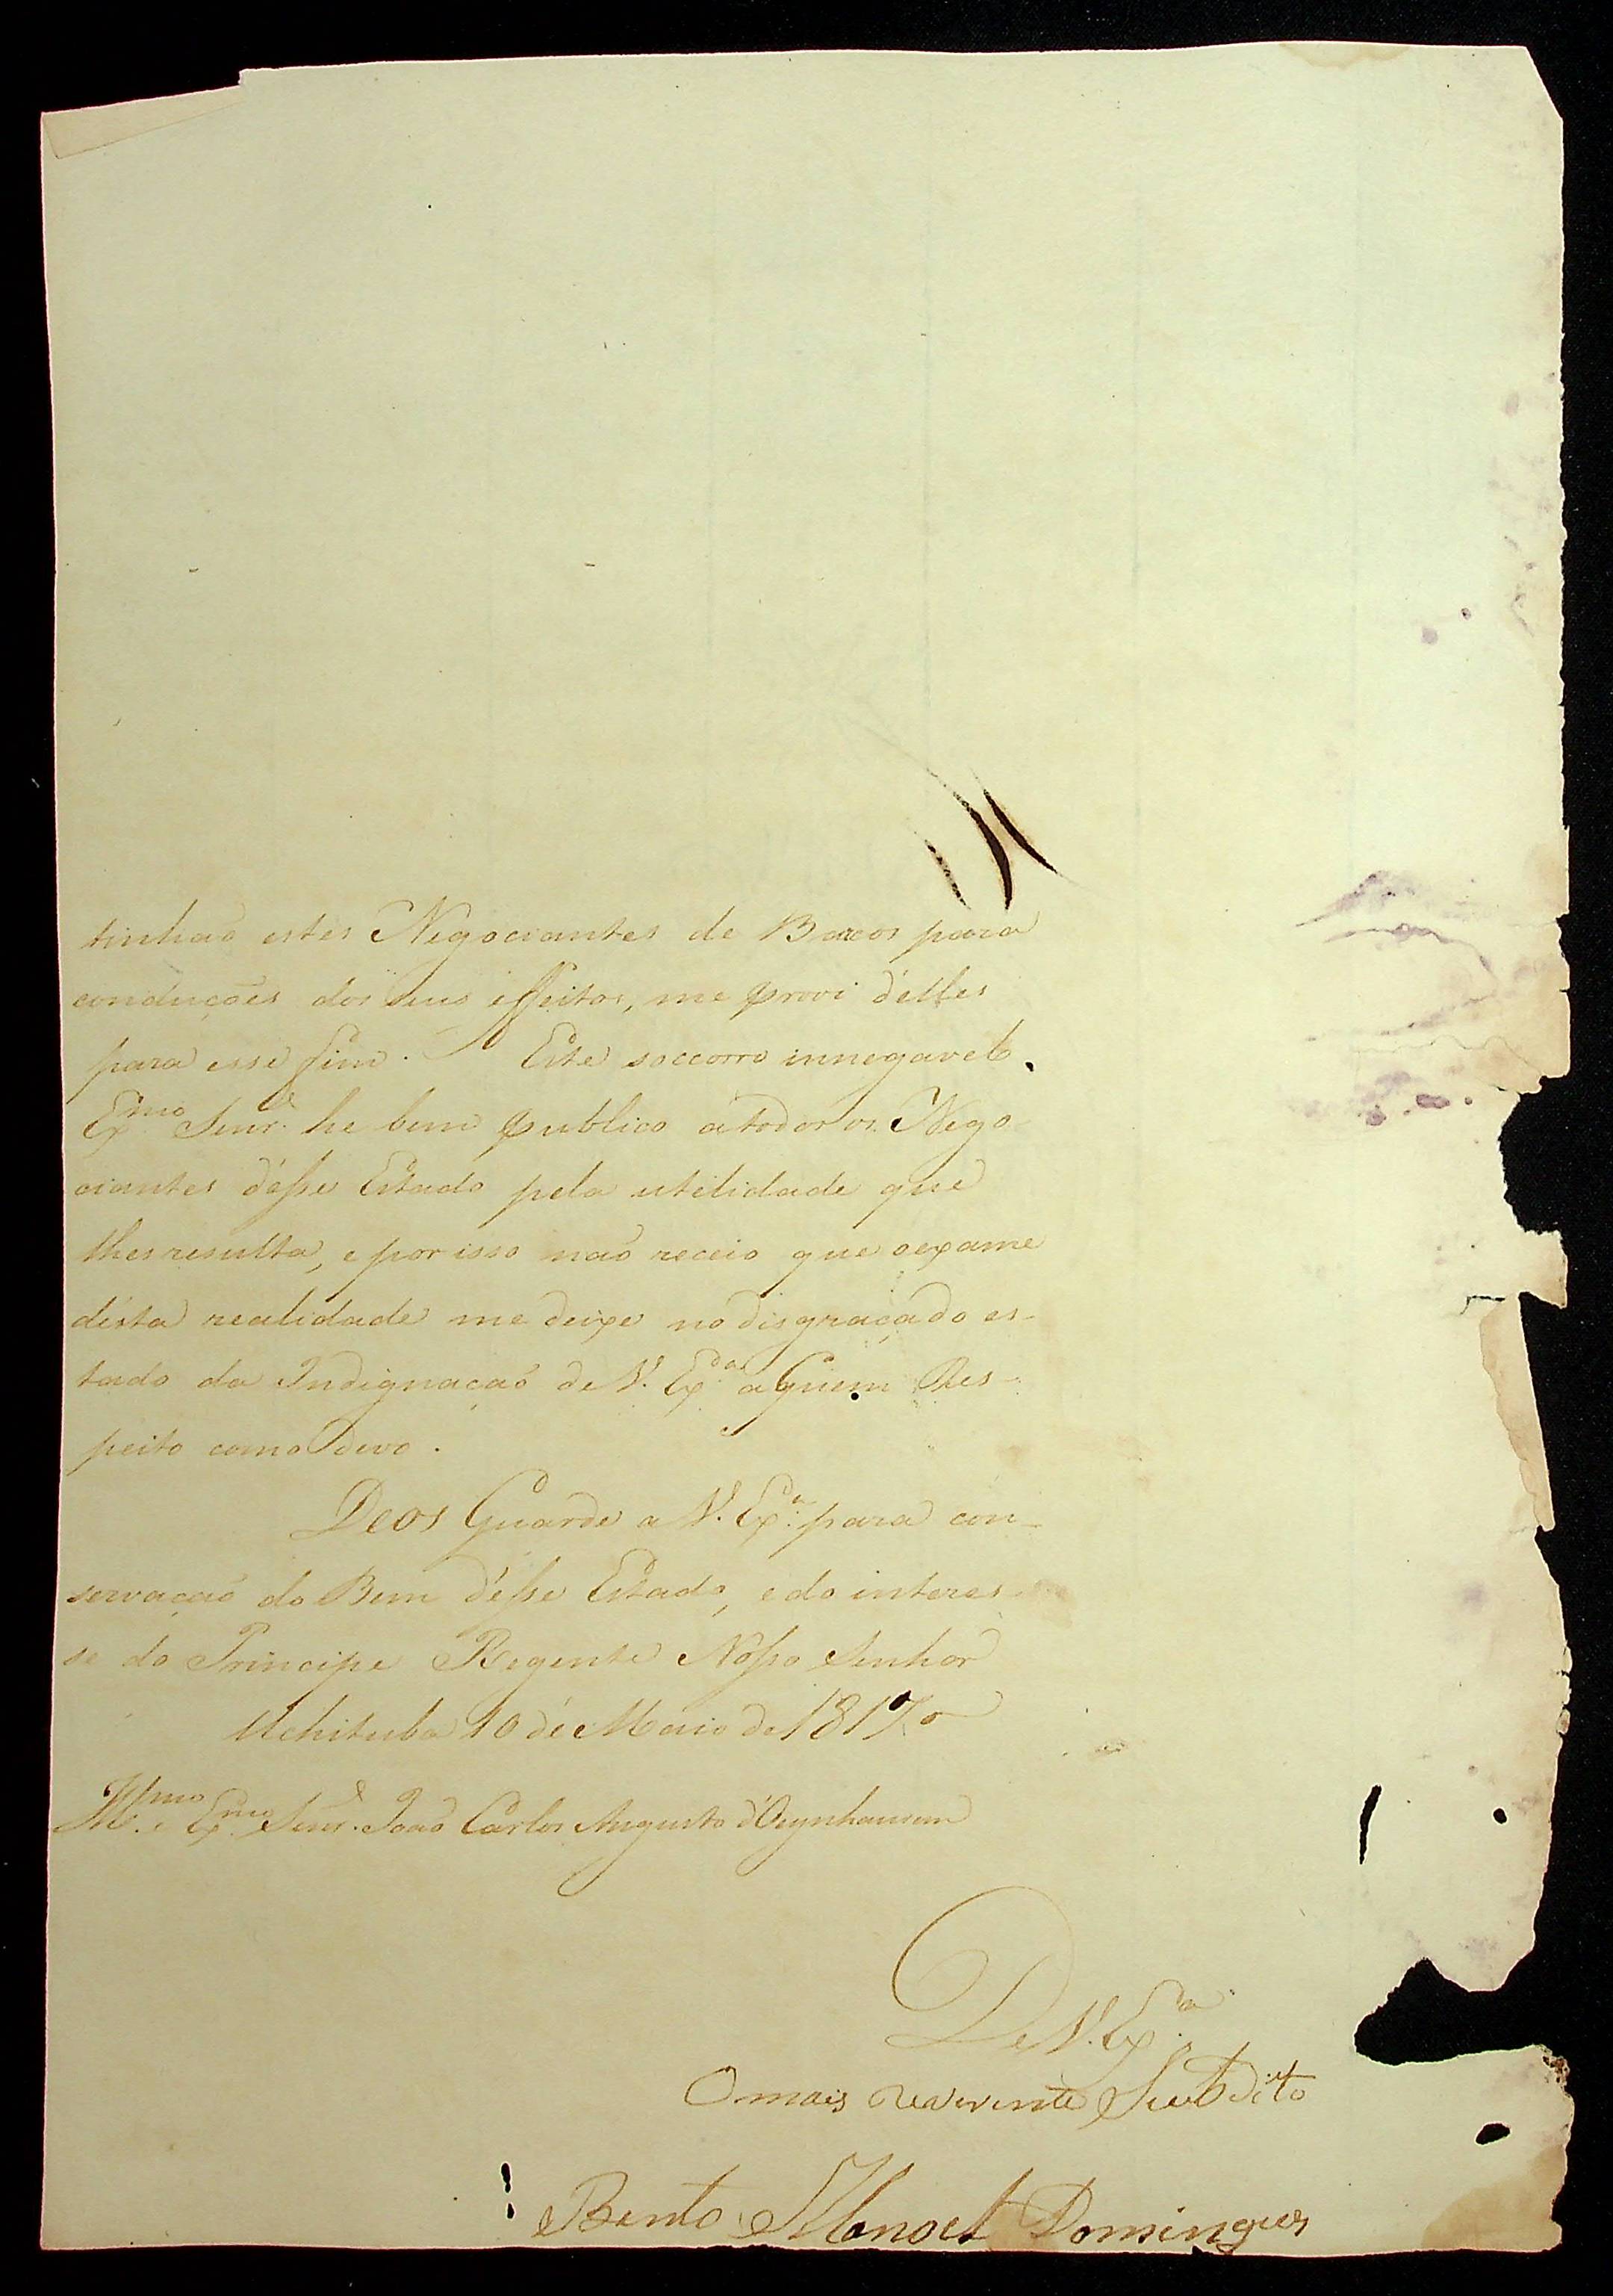 tinhaõ estes Negociantes de Barcos para
conduções dos seus effeitos, me provi d'elles
para esse fim. Este soccorro innegavel.
Ex.mo Senr. he bem publico atodos os Nego
ciantes d'esse Estado pela utilidade que
lhes resulta, e por isso naõ receio que oexame
désta realidade me deixe no disgraçado es-
tado da Indignaçaõ de V. Ex.a aquem Res-
peito como devo.
Deos Guarde a V. Ex.a para con-
servaçaõ do Bem d'esse Estado, edo interes-
se do Principe Regente Nosso Senhor
10 de Maio de 1817
Ill.mo e Ex.mo Senr. Joaõ Carlos Augusto d'Oeynhausen
De V. Ex.a
Omais reverente Subdito
Bento Manoel Domingues